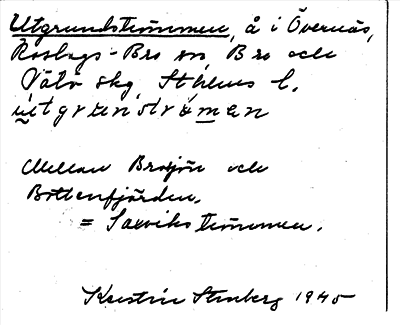 Utgrundströmmen, å i Övernäs,
Roslags-Bro sn, Bro och
Vätö skg, Sthlms l.
Mellan Brosjön och
Bottenfjärden.
= Saxviksströmmen.
Kerstin Stenberg 1945